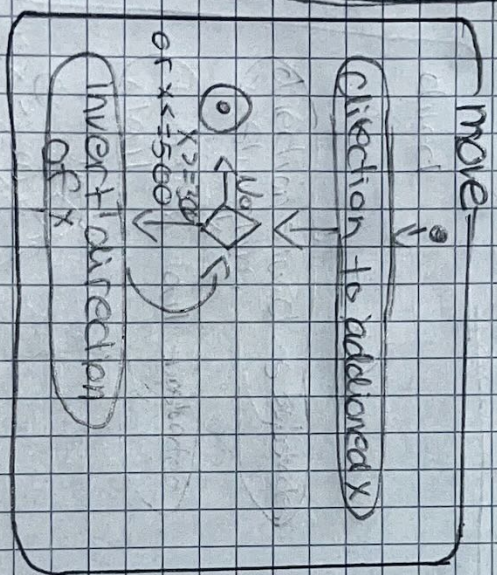 move
direction to addioned x
No
x >=
or x <=-500
Invert direction
of x